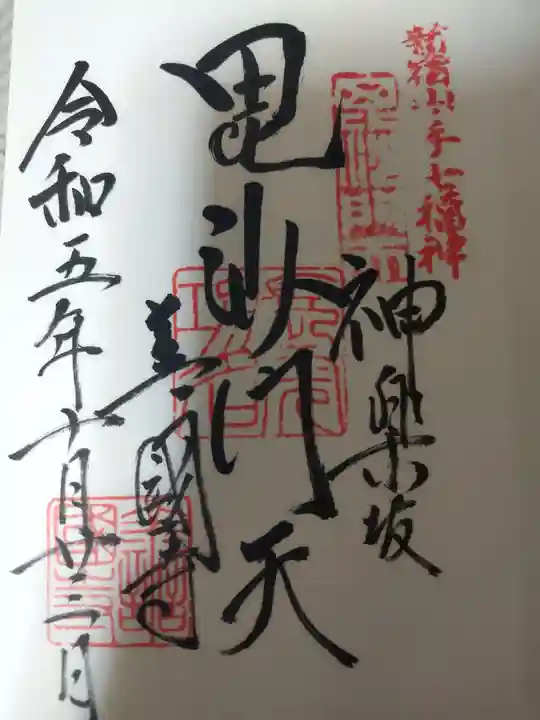 新宿山ノ手七福神
神楽坂
毘沙門天
善國寺
令和五年十月廿三日